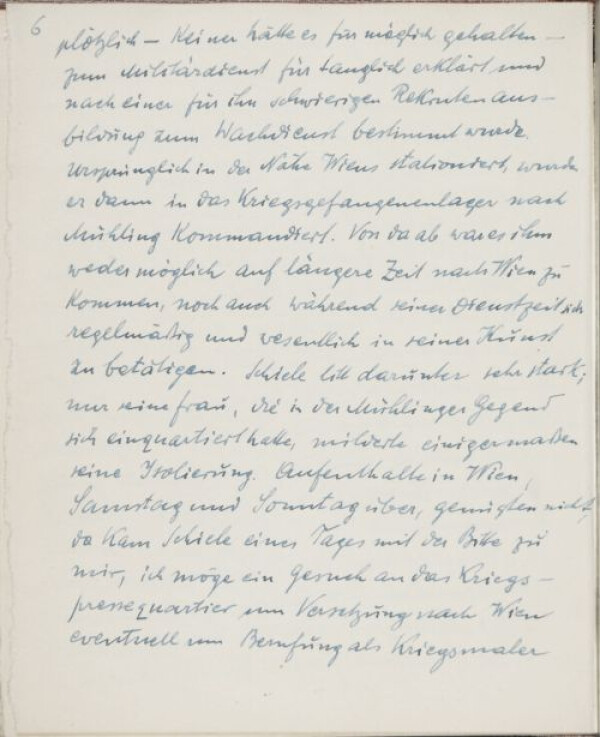 6
plötzlich – Keiner hätte es für möglich gehalten –
zum Militärdienst für tauglich erklärt und
nach einer für ihn schwierigen Rekrutenaus-
bildung zum Wachdienst bestimmt wurde.
Ursprünglich in der Nähe Wiens stationiert, wurde
er dann in das Kriegsgefangenenlager nach
Mühling Kommandiert. Von da ab war es ihm
weder möglich auf längere Zeit nach Wien zu
Kommen, noch auch während seiner Dienstzeit sich
regelmäßig und wesentlich in seiner Kunst
zu betätigen. Schiele litt darunter sehr stark;
nur seine Frau, die in der Mühlinger Gegend
sich einquartiert hatte, milderte einigermaßen
seine Isolierung. Aufenthalte in Wien,
Samstag und Sonntag über, genügten nicht,
da Kam Schiele eines Tages mit der Bitte zu
mir, ich möge ein Gesuch an das Kriegs-
pressequartier um Versetzung nach Wien
eventuell um Berufung als Kriegsmaler